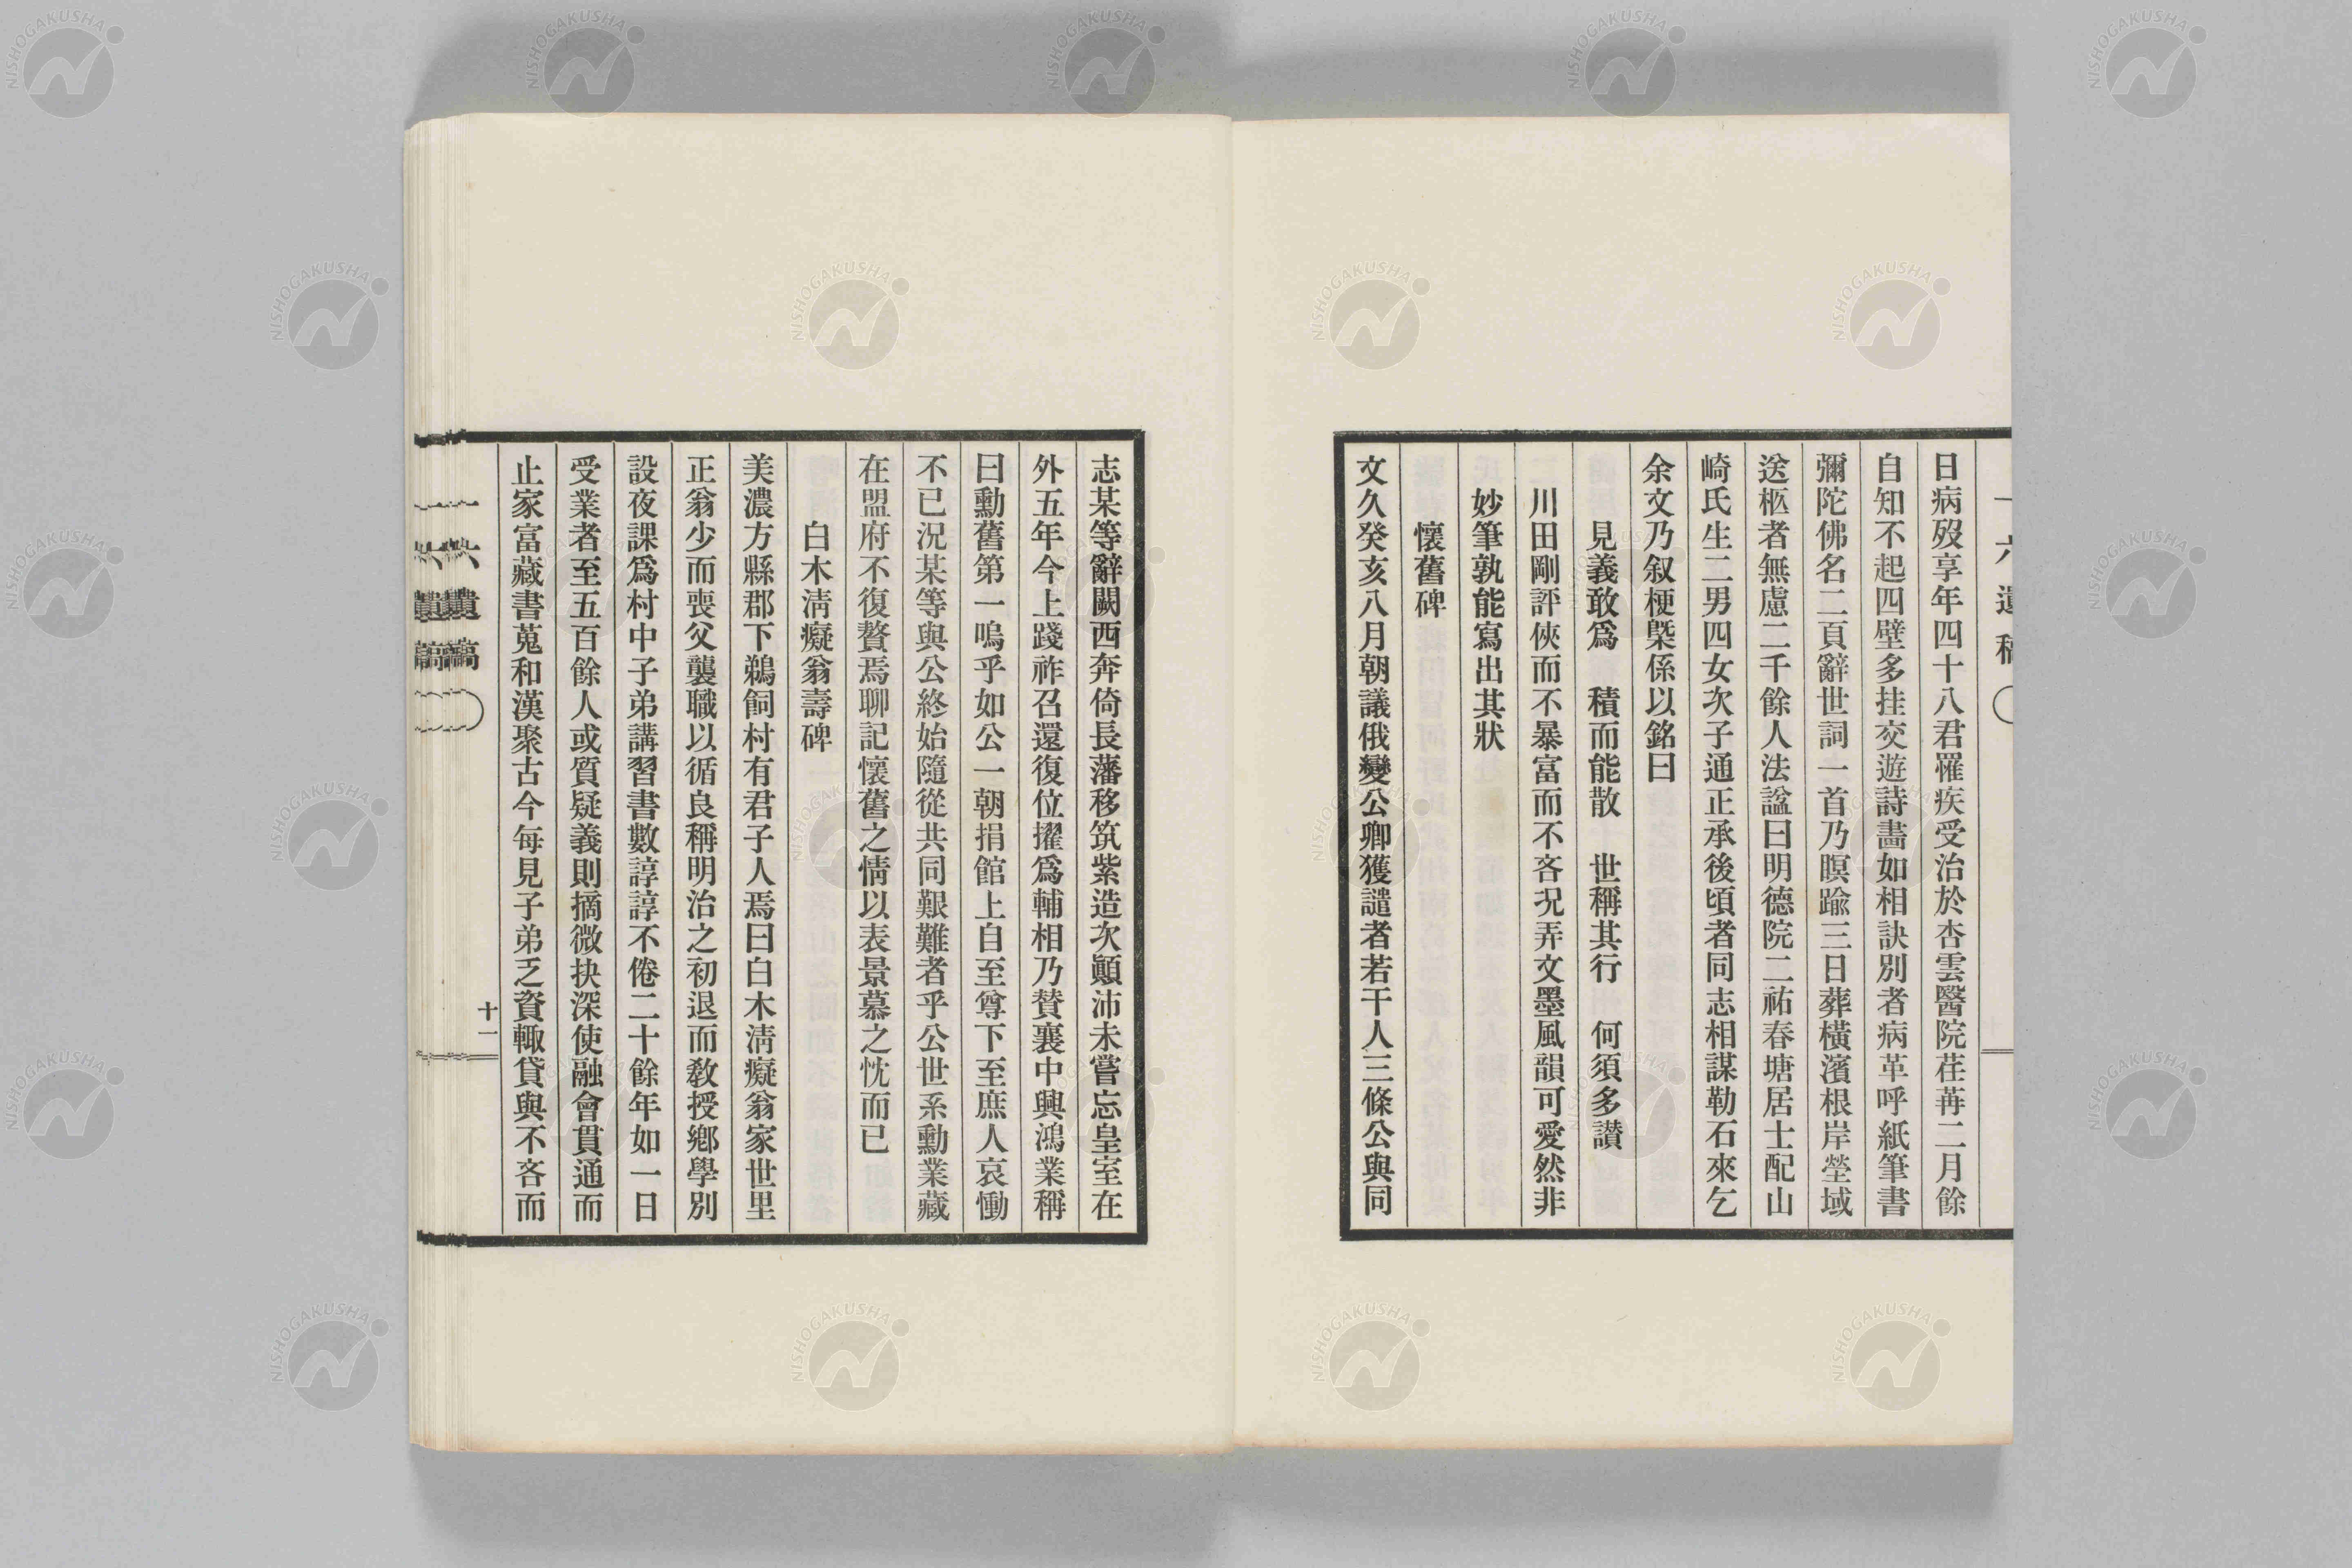 日病歿享年四十八君罹疾受治於杏雲醫院荏苒二月餘
自知不起四壁多挂交遊詩畫如相訣別者病革呼紙筆書
彌陀佛名二頁辭世詞一首乃瞑踰三日葬橫濱根岸塋域
送柩者無慮二千餘人法諡曰明德院二祐春塘居士配山
崎氏生二男四女次子通正承後頃者同志相謀勒石來乞
余文乃叙梗槩係以銘曰
見義敢爲　積而能散　世稱其行　何須多讃
川田剛評俠而不暴富而不吝況弄文墨風韻可愛然非
妙筆孰能寫出其狀
懷舊碑
文久癸亥八月朝議俄變公卿獲譴者若干人三條公與同
志某等辭闕西奔倚長藩移筑紫造次顚沛未嘗忘皇室在
外五年今上踐祚召還復位擢爲輔相乃賛襄中興鴻業稱
曰勳舊第一嗚乎如公一朝捐館上自至尊下至庶人哀慟
不已況某等與公終始隨從共同艱難者乎公世系勳業藏
在盟府不復贅焉聊記懷舊之情以表景慕之忱而已
白木淸癡翁壽碑
美濃方縣郡下鵜飼村有君子人焉曰白木淸癡翁家世里
正翁少而喪父襲職以循良稱明治之初退而敎授鄕學別
設夜課爲村中子弟講習書數諄諄不倦二十餘年如一日
受業者至五百餘人或質疑義則摘微抉深使融會貫通而
止家富藏書蒐和漢聚古今每見子弟乏資輙貸與不吝而
一六遺稿
十一
NISHOGAKUSHA